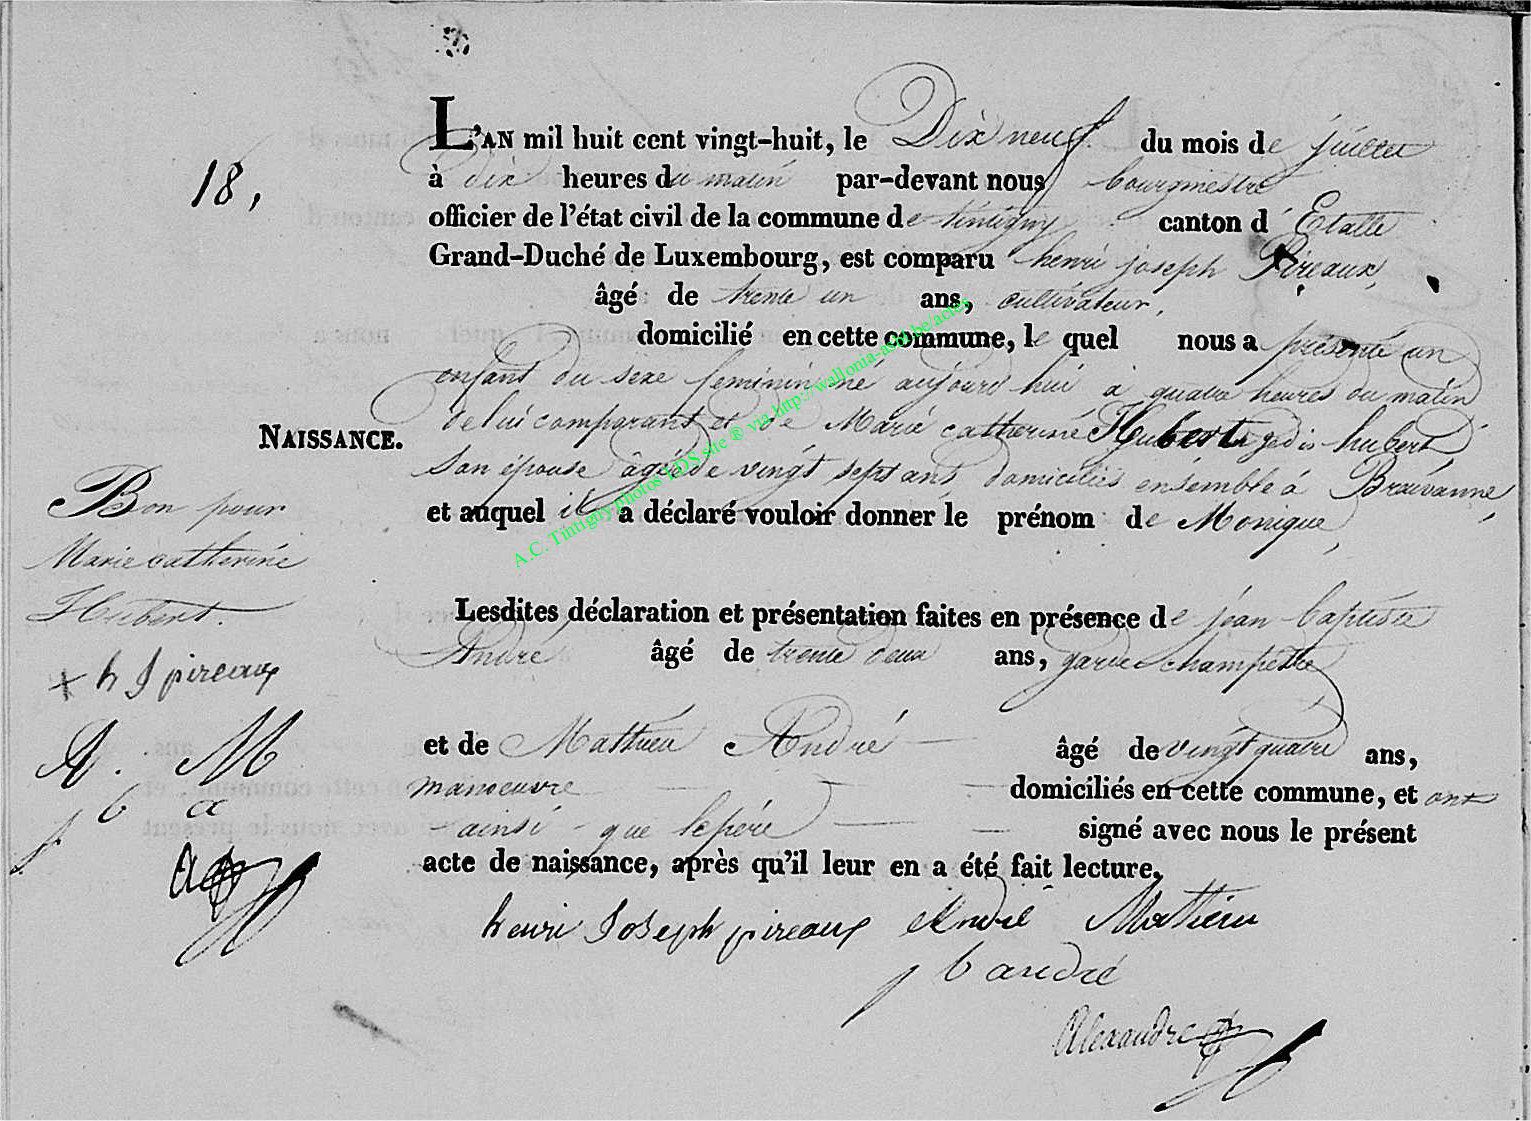 18,
L'AN mil huit cent vingt-huit, le Dix neuf du mois de juillet
à dix heures du matin par-devant nous bourgmestre
officier de l'état civil de la commune de tintigny canton d' Etalle
Grand-Duché de Luxembourg, est comparu henri joseph Pireaux,
âgé de trente un ans, cultivateur,
domicilié en cette commune, le quel nous a présenté un
enfant du sexe feminin né aujourd'hui à quatre heures du matin
de lui comparant et de Marie catherine Hubert hubert
son épouse âgée de vingt sept ans domiciliés ensemble à Breuvanne,
et auquel il a déclaré vouloir donner le prénom de Monique,
Lesdites déclaration et présentation faites en présence de jean baptiste
André âgé de trente deux ans, garde champetre
et de Mathieu André âgé de vingt quatre ans,
manoeuvre domiciliés en cette commune, et ont
ainsi que le père signé avec nous le présent
acte de naissance, après qu'il leur en a été fait lecture.
henri Joseph pireaux André Mathieu
j b andré
Alexandre
NAISSANCE.
Bon pour
Marie catherine
Hubert.
+ h J pireaux
A. M
j b a
A.C. Tintigny-photos LDS site ® via http://wallonia-asbl.be/actes